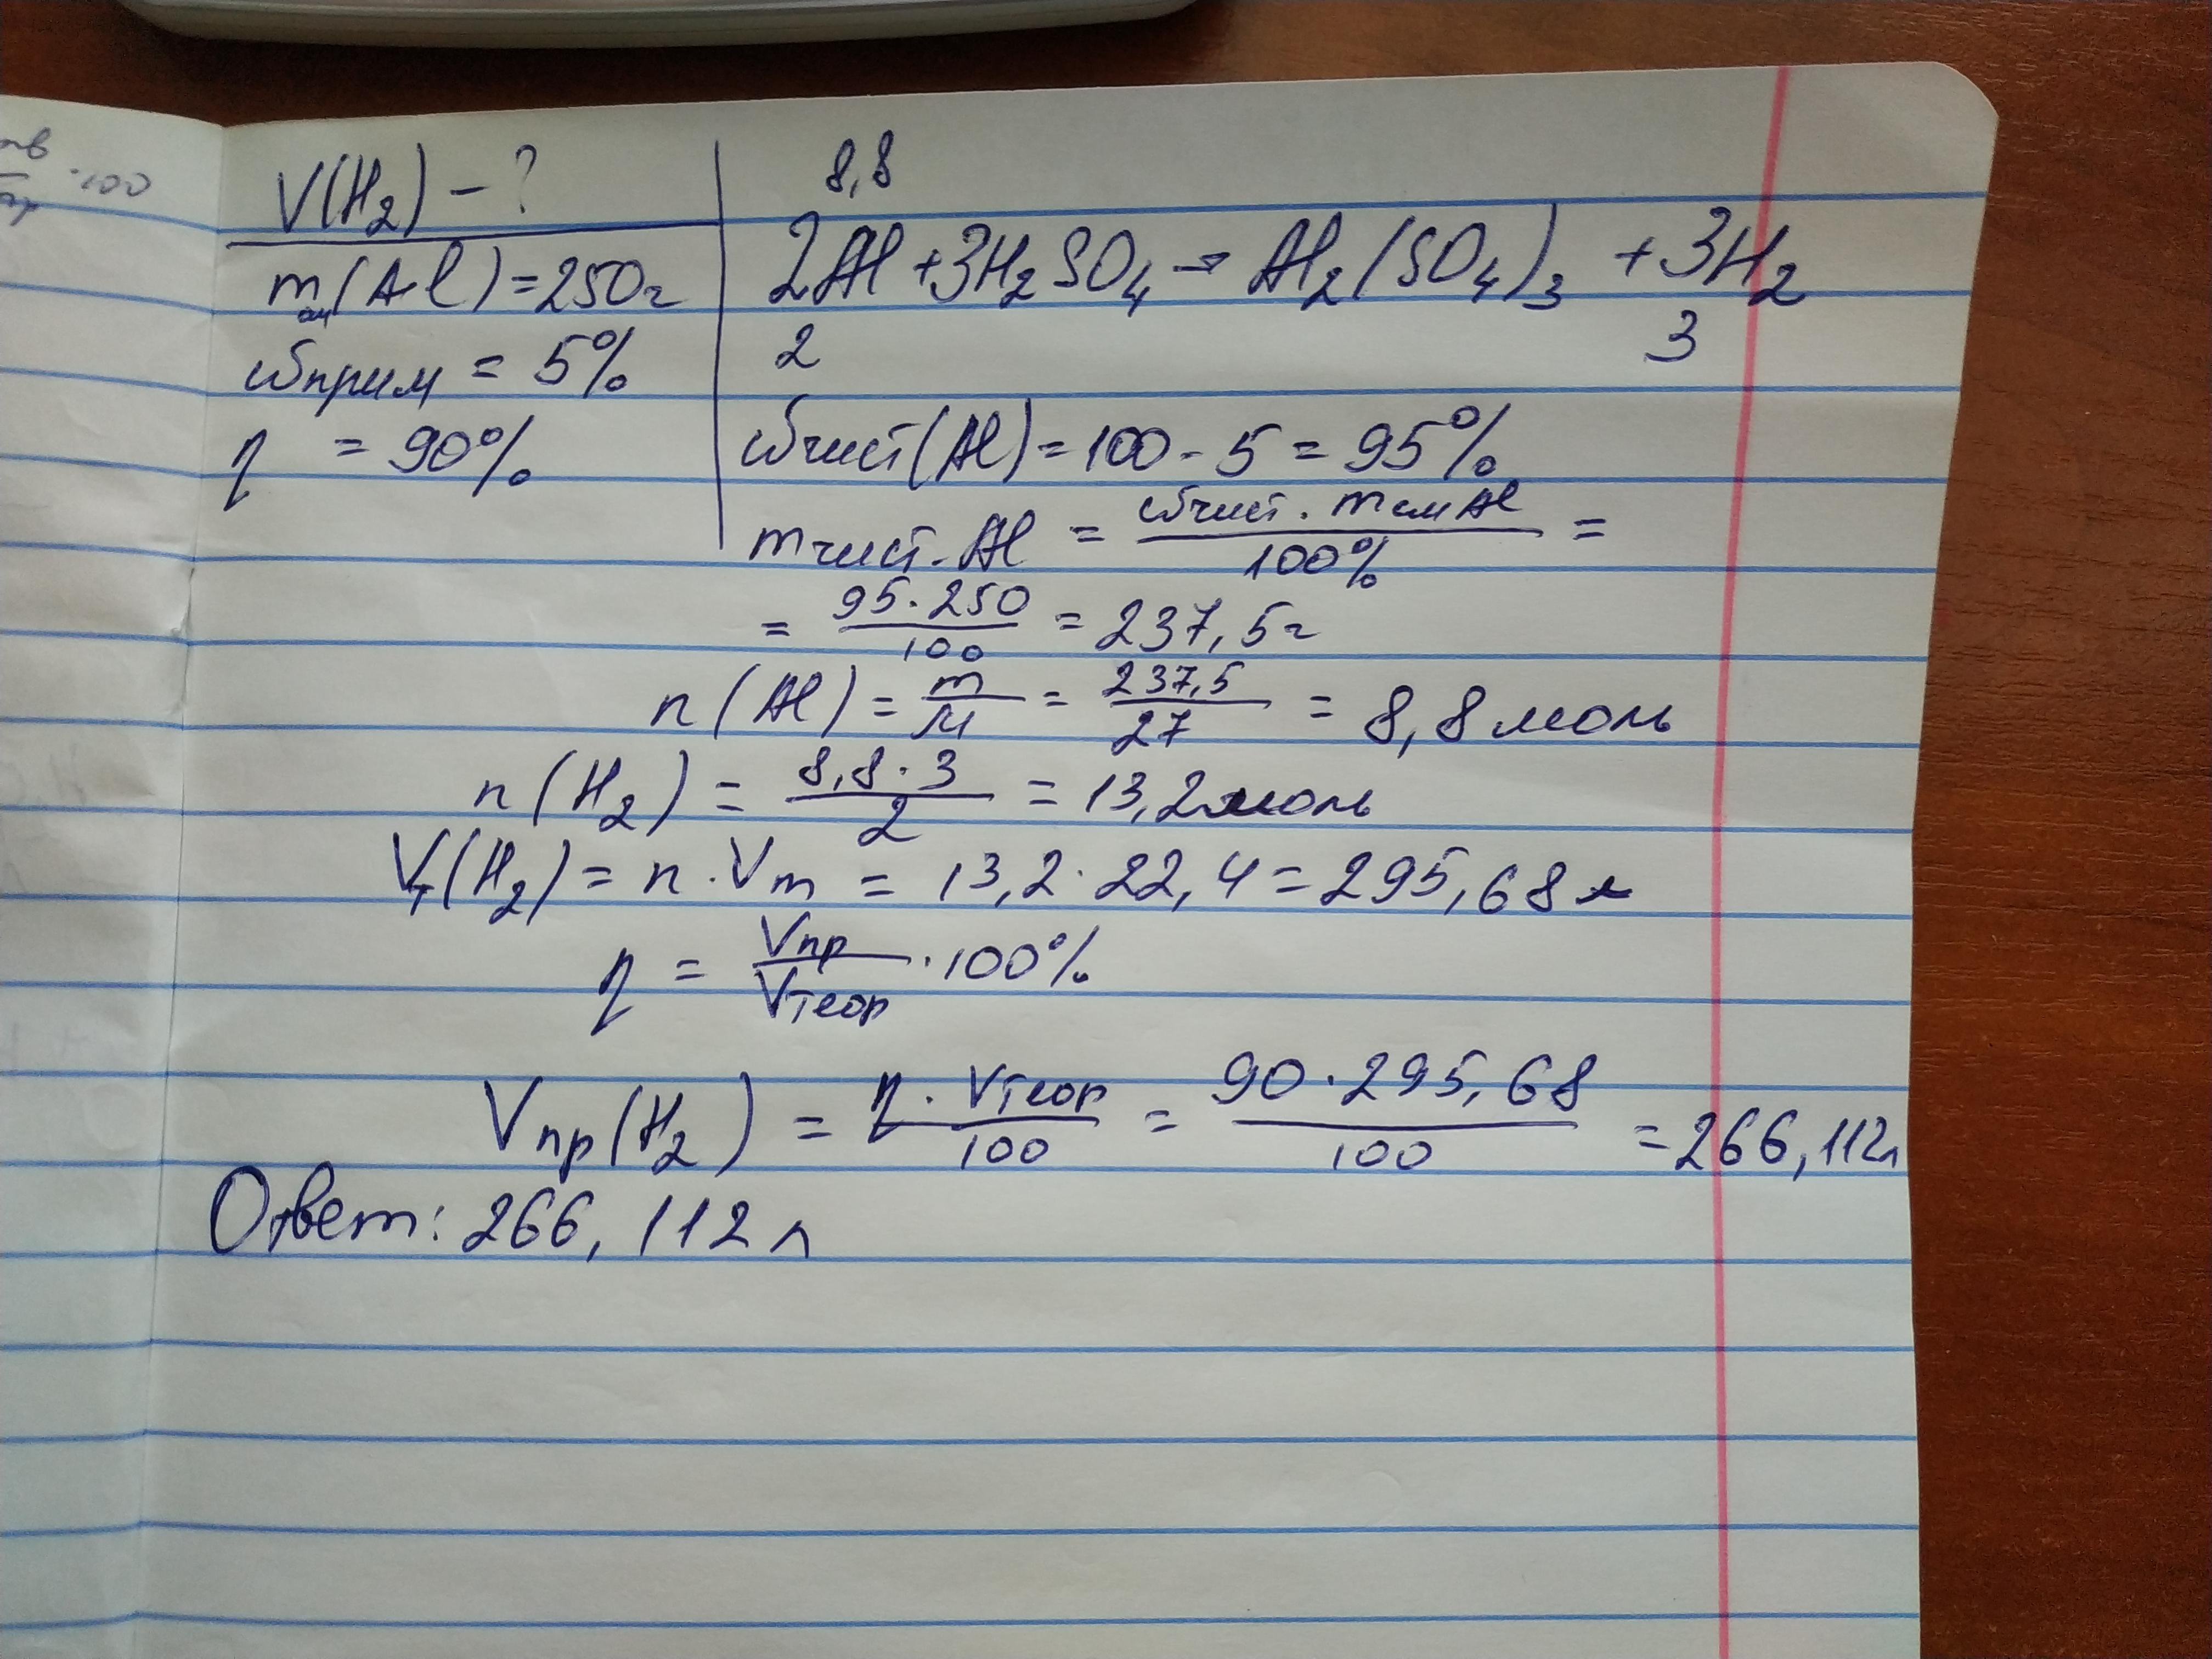 тв
—— · 100
V(H₂) – ?
mсм(Al) = 250г
ωприм = 5%
η = 90%
8,8
2Al + 3H₂SO₄ → Al₂(SO₄)₃ + 3H₂
2 3
ωчист(Al) = 100 - 5 = 95%
mчист. Al = ωчист. · mсм Al / 100% =
= 95 · 250 / 100 = 237,5г
n(Al) = m / M = 237,5 / 27 = 8,8 моль
n(H₂) = 8,8 · 3 / 2 = 13,2 моль
Vт(H₂) = n · Vm = 13,2 · 22,4 = 295,68 л
η = Vпр / Vтеор · 100%
Vпр(H₂) = η · Vтеор / 100 = 90 · 295,68 / 100 = 266,112л
Ответ: 266,112 л